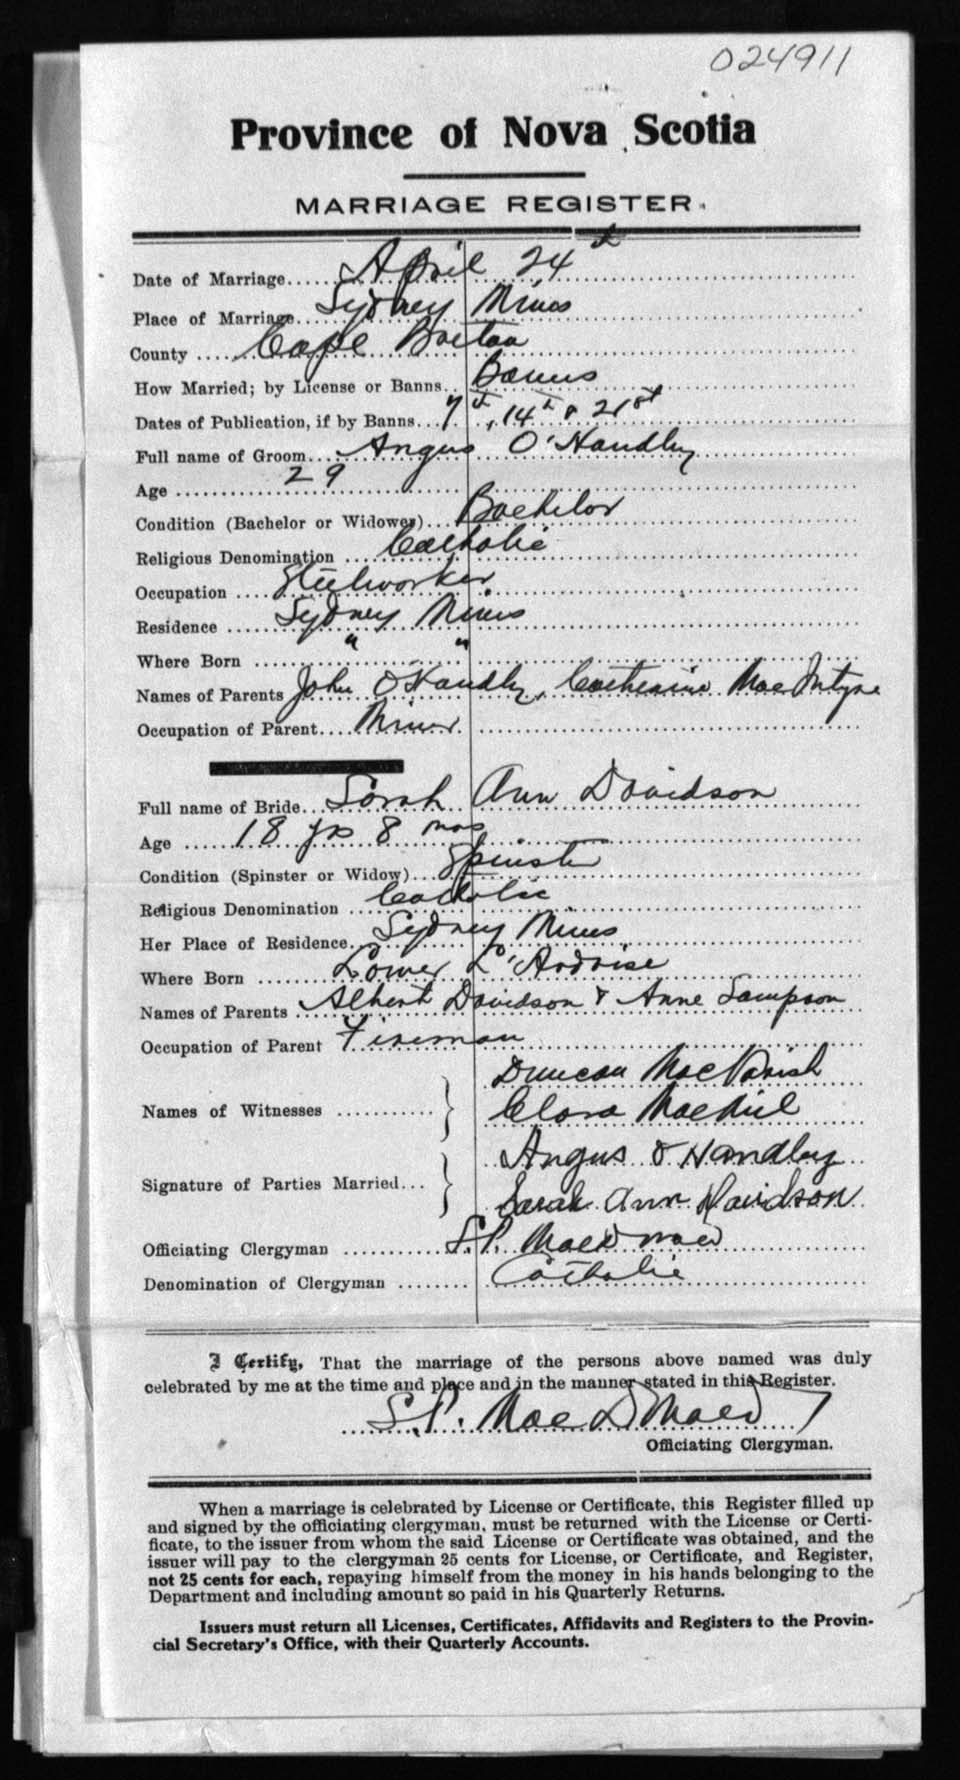 024911
Province of Nova Scotia
MARRIAGE REGISTER.
Date of Marriage..... April 24th
Place of Marriage..... Sydney Mines
County ..... Cape Breton
How Married; by License or Banns.. Banns
Dates of Publication, if by Banns... 7th, 14th & 21st
Full name of Groom.... Angus O'Handley
Age ..... 29
Condition (Bachelor or Widower)... Bachelor
Religious Denomination .... Catholic
Occupation .... Steelworker
Residence ..... Sydney Mines
Where Born ..... " "
Names of Parents John O'Handley, Catherine MacIntyre
Occupation of Parent.... Miner
Full name of Bride... Sarah Ann Davidson
Age ..... 18 yrs 8 mos
Condition (Spinster or Widow)... Spinster
Religious Denomination ... Catholic
Her Place of Residence.. Sydney Mines
Where Born ..... Lower L'Ardoise
Names of Parents ... Albert Davidson & Anne Sampson
Occupation of Parent Fireman
Duncan MacParish
Names of Witnesses ............ Clara MacNeil
Angus O Handley
Signature of Parties Married...
Sarah Ann Davidson
Officiating Clergyman .......... S.P. MacDonald
Denomination of Clergyman ........ Catholic
I Certify, That the marriage of the persons above named was duly
celebrated by me at the time and place and in the manner stated in this Register.
S.P. MacDonald
Officiating Clergyman.
When a marriage is celebrated by License or Certificate, this Register filled up
and signed by the officiating clergyman, must be returned with the License or Certi-
ficate, to the issuer from whom the said License or Certificate was obtained, and the
issuer will pay to the clergyman 25 cents for License, or Certificate, and Register,
not 25 cents for each, repaying himself from the money in his hands belonging to the
Department and including amount so paid in his Quarterly Returns.
Issuers must return all Licenses, Certificates, Affidavits and Registers to the Provin-
cial Secretary's Office, with their Quarterly Accounts.